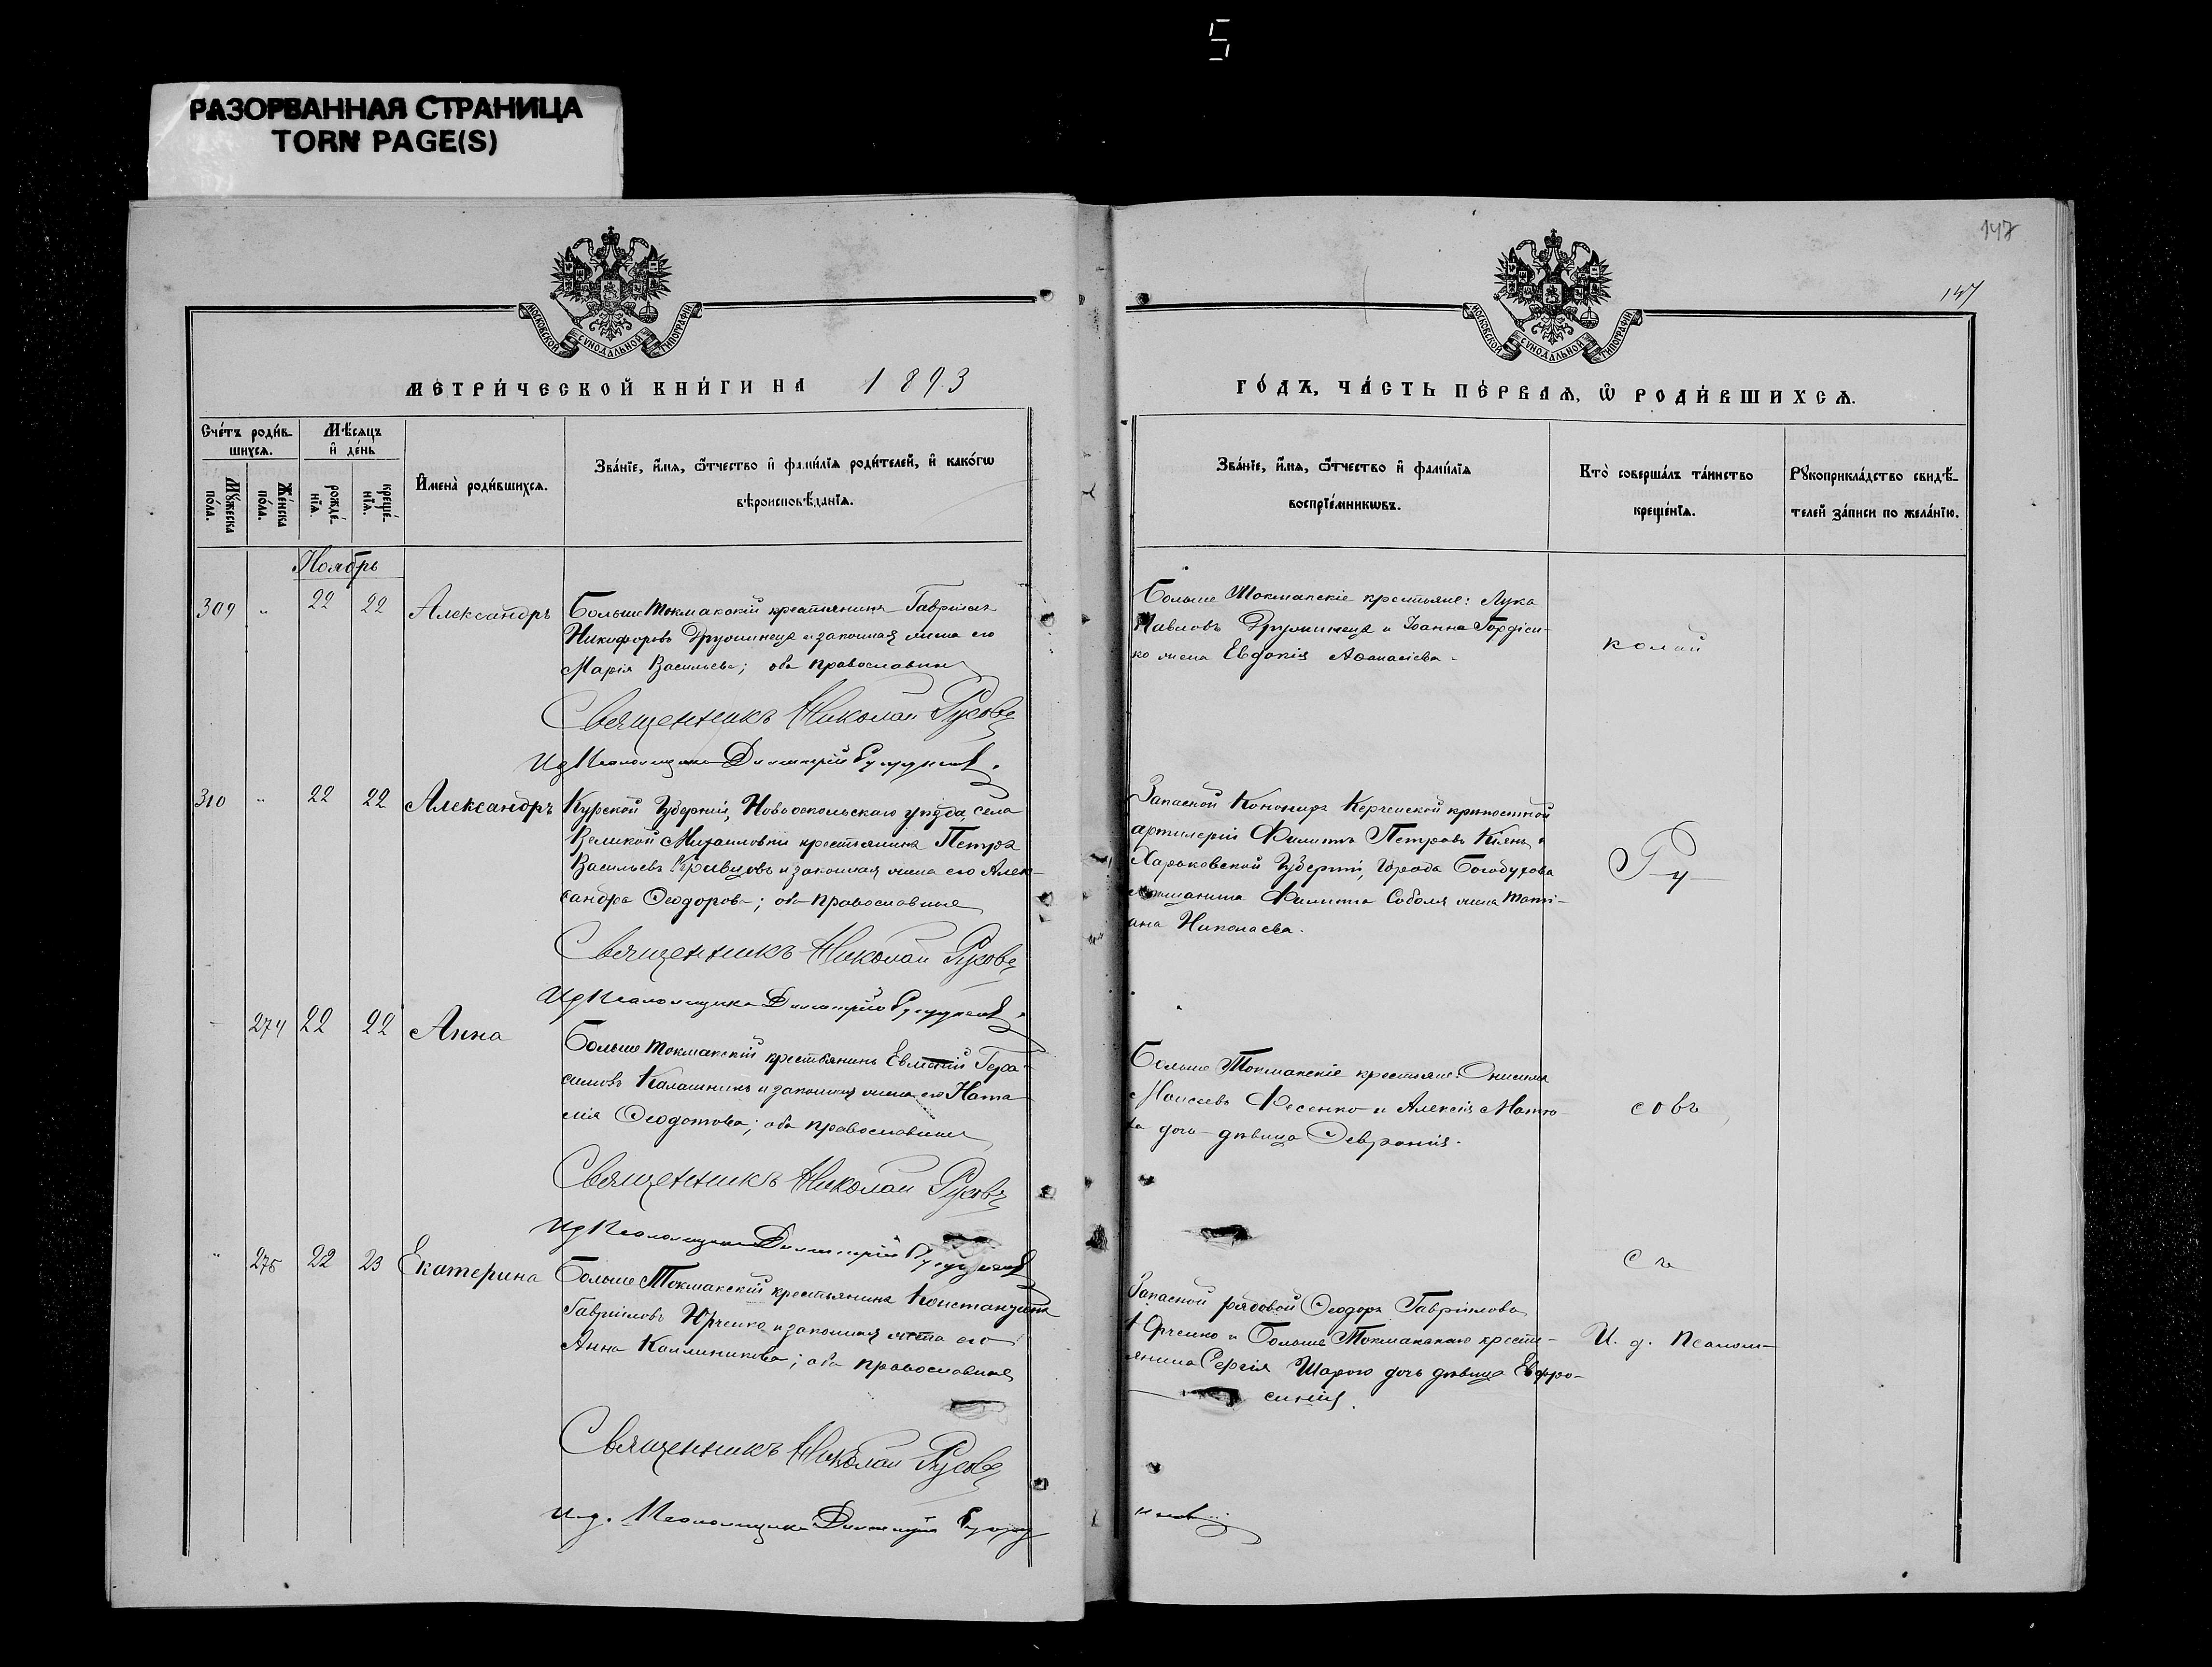 5
РАЗОРВАННАЯ СТРАНИЦА
TORN PAGE(S)
147
147
МОСКОВСКОЙ СУНОДАЛЬНОЙ ТИПОГРАФІИ
МОСКОВСКОЙ СУНОДАЛЬНОЙ ТИПОГРАФІИ
МЕТРИ́ЧЕСКОЙ КНИ́ГИ НА 1893
ГО́ДЪ, ЧА́СТЬ ПЕ́РВАѦ, Ѽ РОДИ́ВШИХСѦ.
Сче́тъ роди́в-
шихсѧ.
Мꙋ́жеска
по́ла.
Же́нска
по́ла.
Мѣ́сѧцъ
и҆ де́нь
рожде́-
нїѧ.
креще́-
нїѧ.
И҆мена̀ роди́вшихсѧ.
Зва́нїе, и҆́мѧ, ѻ҆́тчество и҆ фами́лїѧ роди́телей, и҆ како́гѡ
вѣроисповѣ́данїѧ.
Зва́нїе, и҆́мѧ, ѻ҆́тчество и҆ фами́лїѧ
воспрїе́мникѡвъ.
Кто̀ соверша́лъ та́инство
креще́нїѧ.
Рꙋкоприкла́дство свидѣ́-
телей за́писи по жела́нїю.
Ноябрь
309 " 22 22 Александръ
Больше Токмакскій крестьянинъ Гавріилъ
Никифоровъ Дружинецъ и законная жена его
Марія Васильева; оба православные
Священникъ Николай Русовъ
И д Псаломщика Димитрій
Больше Токмакскіе крестьяне: Лука
Павловъ Дружинецъ и Іоанна Гордіен-
ко жена Евдокія Аѳанасіева.
колай
310 " 22 22 Александръ
Курской Губерніи, Новооскольскаго уѣзда, села
Великой Михайловки крестьянинъ Петръ
Васильевъ Кривцовъ и законная жена его Алек-
сандра Ѳеодорова; оба православные
Священникъ Николай Русовъ
И д Псаломщика Димитрій
Запасной Канониръ Керченской крѣпостной
артилеріи Филиппъ Петровъ Кіянъ и
Харьковской Губерніи, города Богодухова
мѣщанина Филиппа Соболя жена Тати-
ана Николаева.
Ру
274 22 22 Анна
Больше Токмакскій крестьянинъ Евмѣній Гера-
симовъ Калашникъ и законная жена его Ната-
лія Ѳеодотова; оба православные
Священникъ Николай Русовъ
И д Псаломщика Димитрій
Больше Токмакскіе крестьяне: Онисимъ
Моисеевъ Фесенко и Алексія
дочь дѣвица Ѳевронія.
совъ
" 275 22 23 Екатерина
Больше Токмакскій крестьянинъ Константинъ
Гавріиловъ Юрченко и законная жена его
Анна Каллиникова; оба православные
Священникъ Николай Русовъ
И. д. Псаломщика Димитрій
Запасной рядовой Ѳеодоръ Гавріиловъ
Юрченко и Больше Токмакскаго кресть-
янина Сергія Шарого дочь дѣвица Евфро-
синія.
Съ
И. д. Псалом-